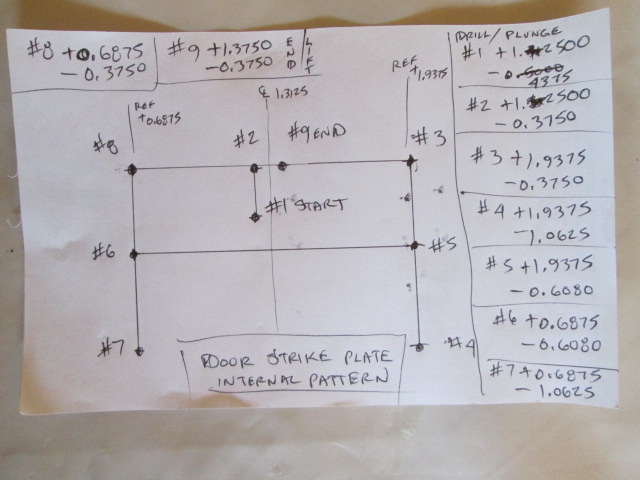 #8 +0.6875
-0.3750
#9 +1.3750
-0.3750
END
LIFT
REF
+1.9375
DRILL/PLUNGE
#1 +1.2500
-0.4375
#2 +1.2500
-0.3750
#3 +1.9375
-0.3750
#4 +1.9375
-1.0625
#5 +1.9375
-0.6080
#6 +0.6875
-0.6080
#7 +0.6875
-1.0625
REF
+0.6875
℄ 1.3125
#8
#2
#9 END
#3
#1 START
#6
#5
#7
#4
DOOR STRIKE PLATE
INTERNAL PATTERN